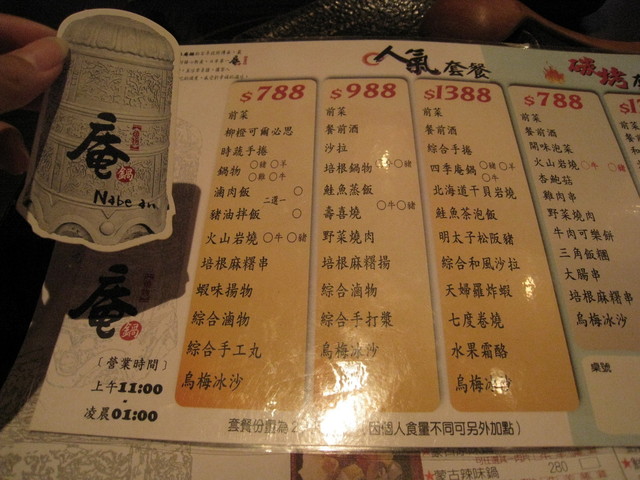 庵
鍋
Nabe an
庵
鍋
〔營業時間〕
上午11:00
-
凌晨01:00
人氣套餐
$788
前菜
柳橙可爾必思
時蔬手捲
鍋物 ○豬○羊
○雞○牛
滷肉飯
二選一
豬油拌飯
火山岩燒 ○牛○豬
培根麻糬串
蝦味揚物
綜合滷物
綜合手工丸
烏梅冰沙
$988
前菜
餐前酒
沙拉
培根鍋物 ○豬
鮭魚蒸飯
壽喜燒 ○牛○豬
野菜燒肉
培根麻糬揚
綜合滷物
綜合手打漿
烏梅冰沙
$1388
前菜
餐前酒
綜合手捲
四季庵鍋 ○豬○羊
○雞○牛
北海道干貝岩燒
鮭魚茶泡飯
明太子松阪豬
綜合和風沙拉
天婦羅炸蝦
七度卷燒
水果霜酪
烏梅冰沙
碳烤
$788
前菜
開味泡菜
火山岩燒 ○牛○豬
杏鮑菇
雞肉串
野菜燒肉
牛肉可樂餅
三角飯糰
大腸串
培根麻糬串
烏梅冰沙
桌號
套餐份量為2
因個人食量不同可另外加點）
蒙古辣味鍋 280